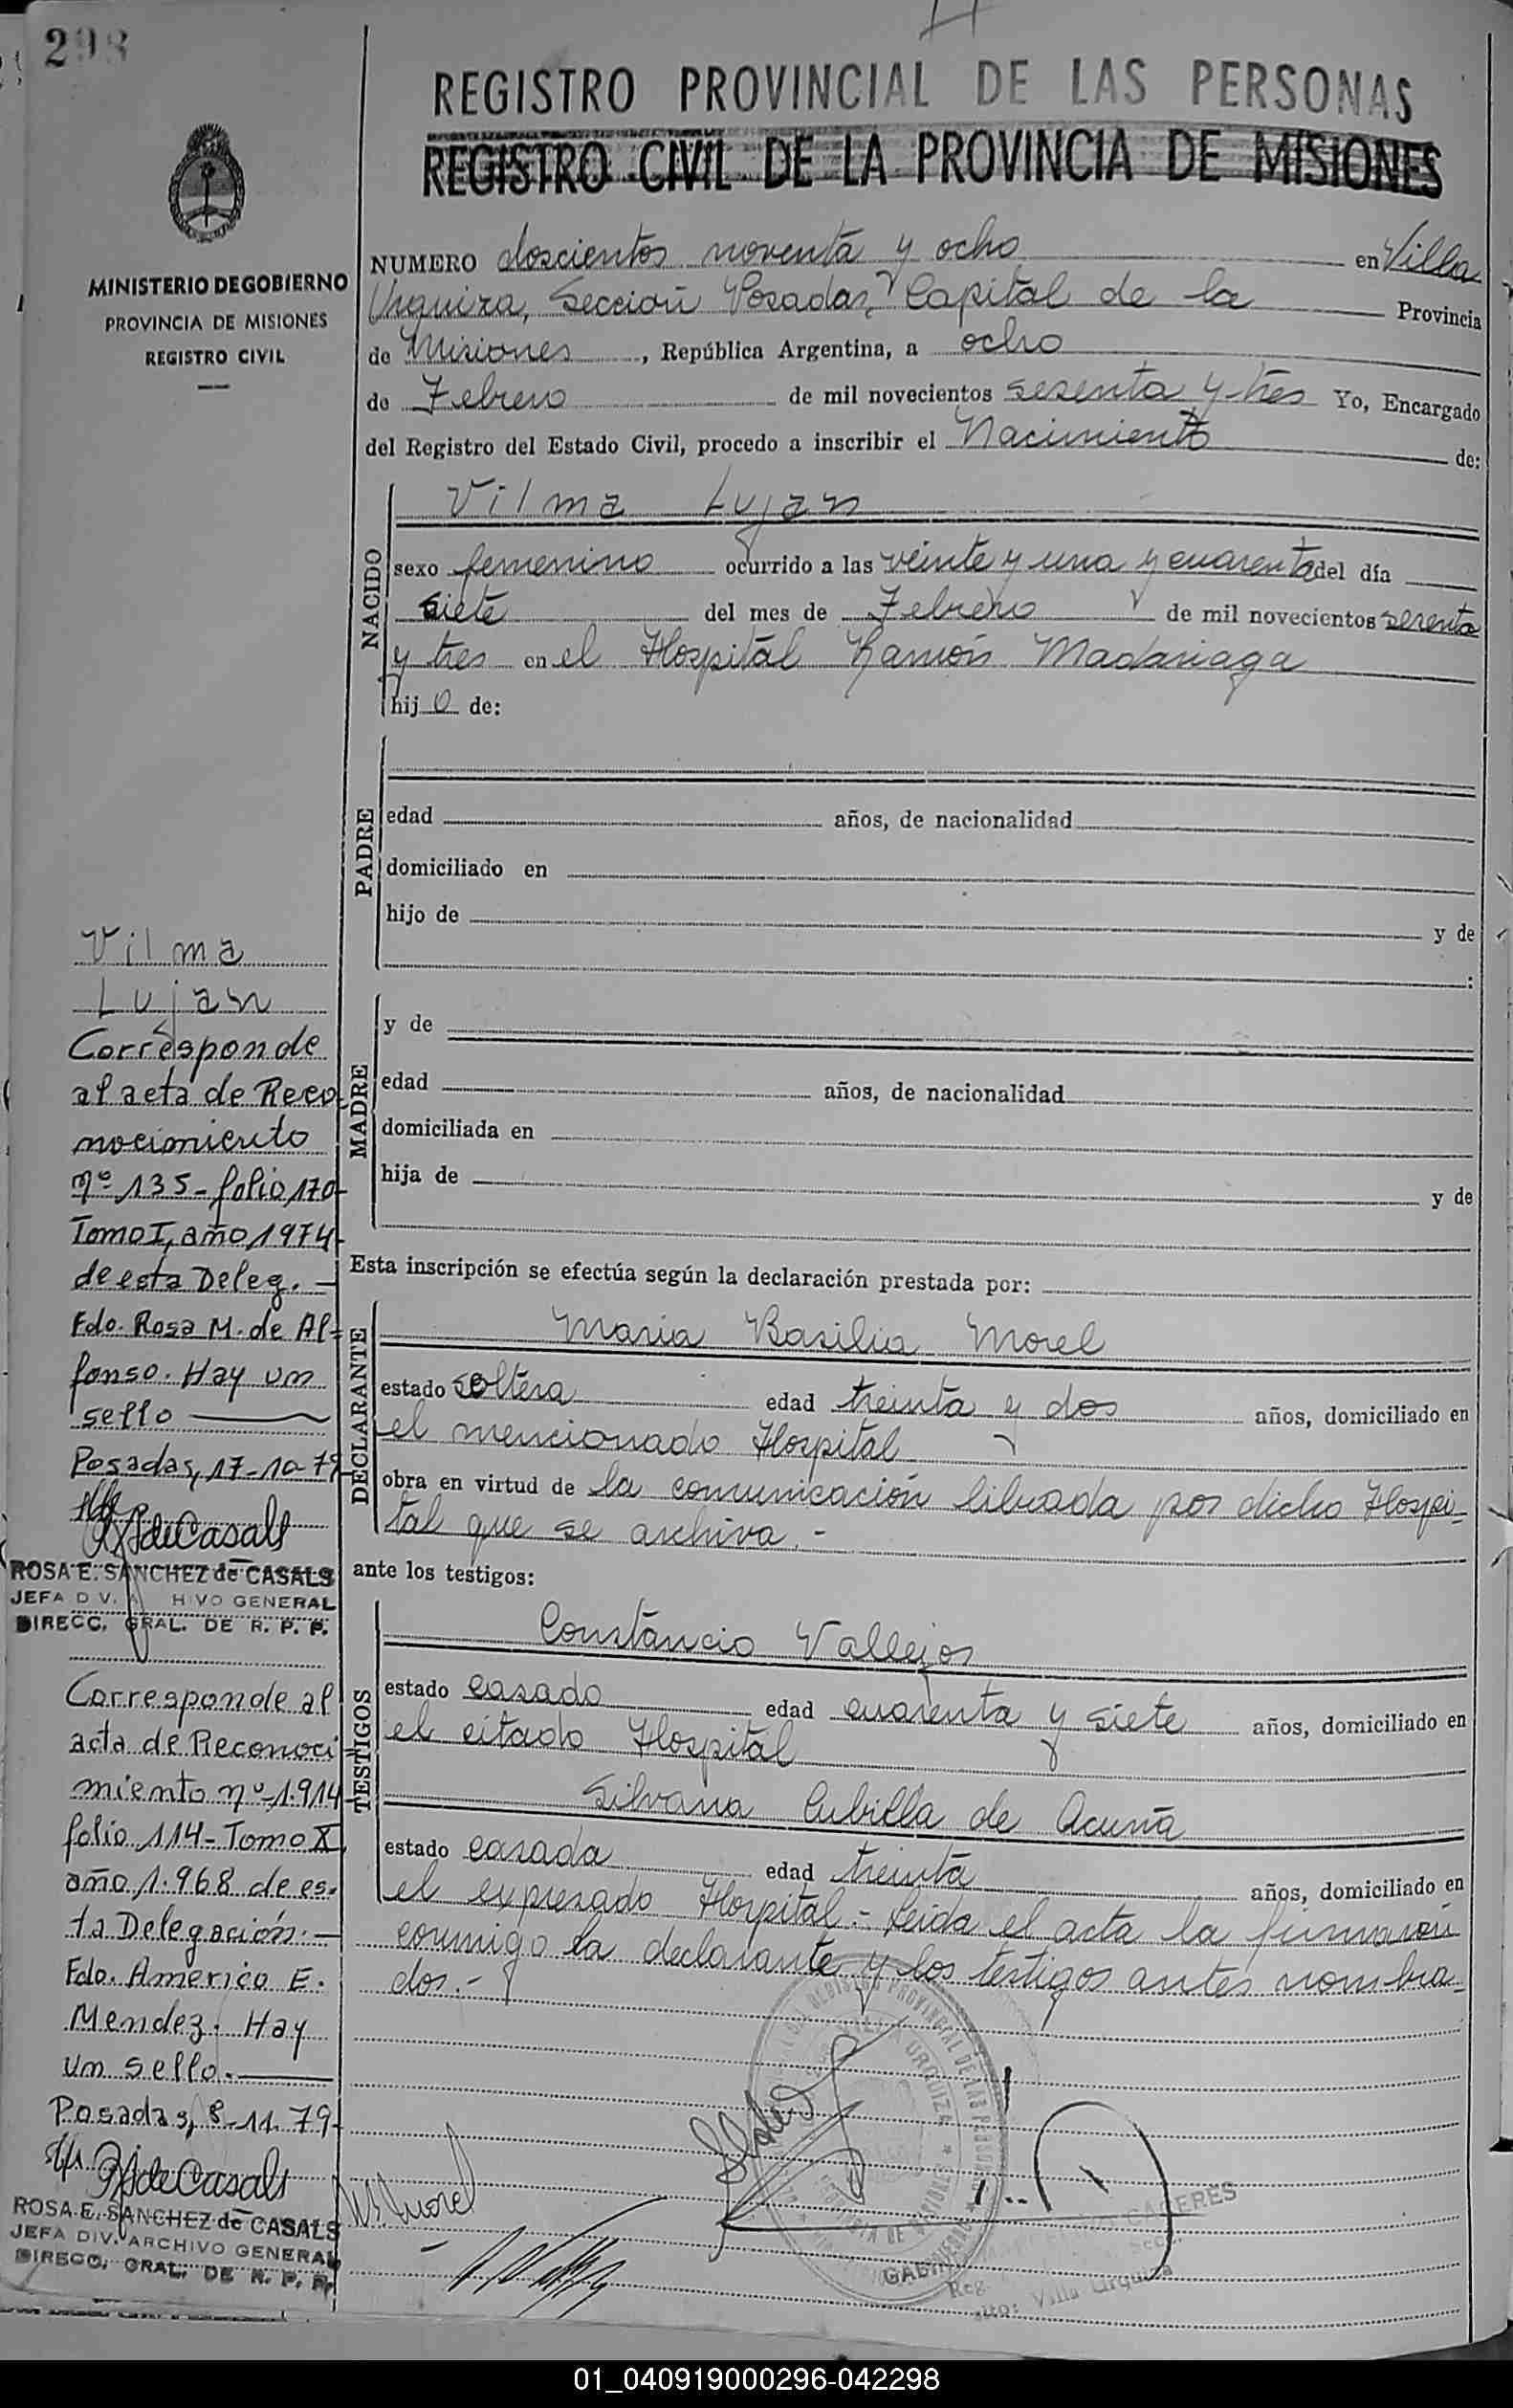 298
REGISTRO PROVINCIAL DE LAS PERSONAS
REGISTRO CIVIL DE LA PROVINCIA DE MISIONES
MINISTERIO DE GOBIERNO
PROVINCIA DE MISIONES
REGISTRO CIVIL
NUMERO doscientos noventa y ocho en Villa
Urquiza, Sección Posadas, Capital de la Provincia
de Misiones, República Argentina, a ocho
de Febrero de mil novecientos sesenta y tres Yo, Encargado
del Registro del Estado Civil, procedo a inscribir el Nacimiento de:
NACIDO
Vilma Lujan
sexo femenino ocurrido a las veinte y una y cuarenta del día
siete del mes de Febrero de mil novecientos sesenta
y tres en el Hospital Ramón Madariaga
hij o de:
PADRE
edad años, de nacionalidad
domiciliado en
hijo de y de
:
MADRE
y de
edad años, de nacionalidad
domiciliada en
hija de y de
Esta inscripción se efectúa según la declaración prestada por:
DECLARANTE
Maria Basilia Morel
estado soltera edad treinta y dos años, domiciliado en
el mencionado Hospital
obra en virtud de la comunicación librada por dicho Hospi-
tal que se archiva.-
ante los testigos:
TESTIGOS
Constancio Vallejos
estado casado edad cuarenta y siete años, domiciliado en
el citado Hospital
Silvana Cubilla de Acuña
estado casada edad treinta años, domiciliado en
el expresado Hospital.- Leida el acta la firmaron
conmigo la declarante y los testigos antes nombra-
dos.-
Vilma
Lujan
Corresponde
al acta de Reco-
nocimiento
nº 135- folio 170-
Tomo I, año 1974-
de esta Deleg.-
Fdo. Rosa M. de Al-
fonso. Hay un
sello
Posadas, 17-10-79
RSdeCasals
ROSA E. SANCHEZ de CASALS
JEFA DIV. ARCHIVO GENERAL
DIRECC. GRAL. DE R. P. P.
Corresponde al
acta de Reconoci
miento nº 1.914
folio 114- Tomo X
año 1.968 de es-
ta Delegación.-
Fdo. Americo E.
Mendez. Hay
un sello.
Posadas, 8-11-79-
RSdeCasals
ROSA E. SANCHEZ de CASALS
JEFA DIV. ARCHIVO GENERAL
DIRECC. GRAL. DE R. P. P.
M B Morel
REGISTRO PROVINCIAL DE LAS PERSONAS
URQUIZA
CACERES
Villa Urquiza
01_040919000296-042298